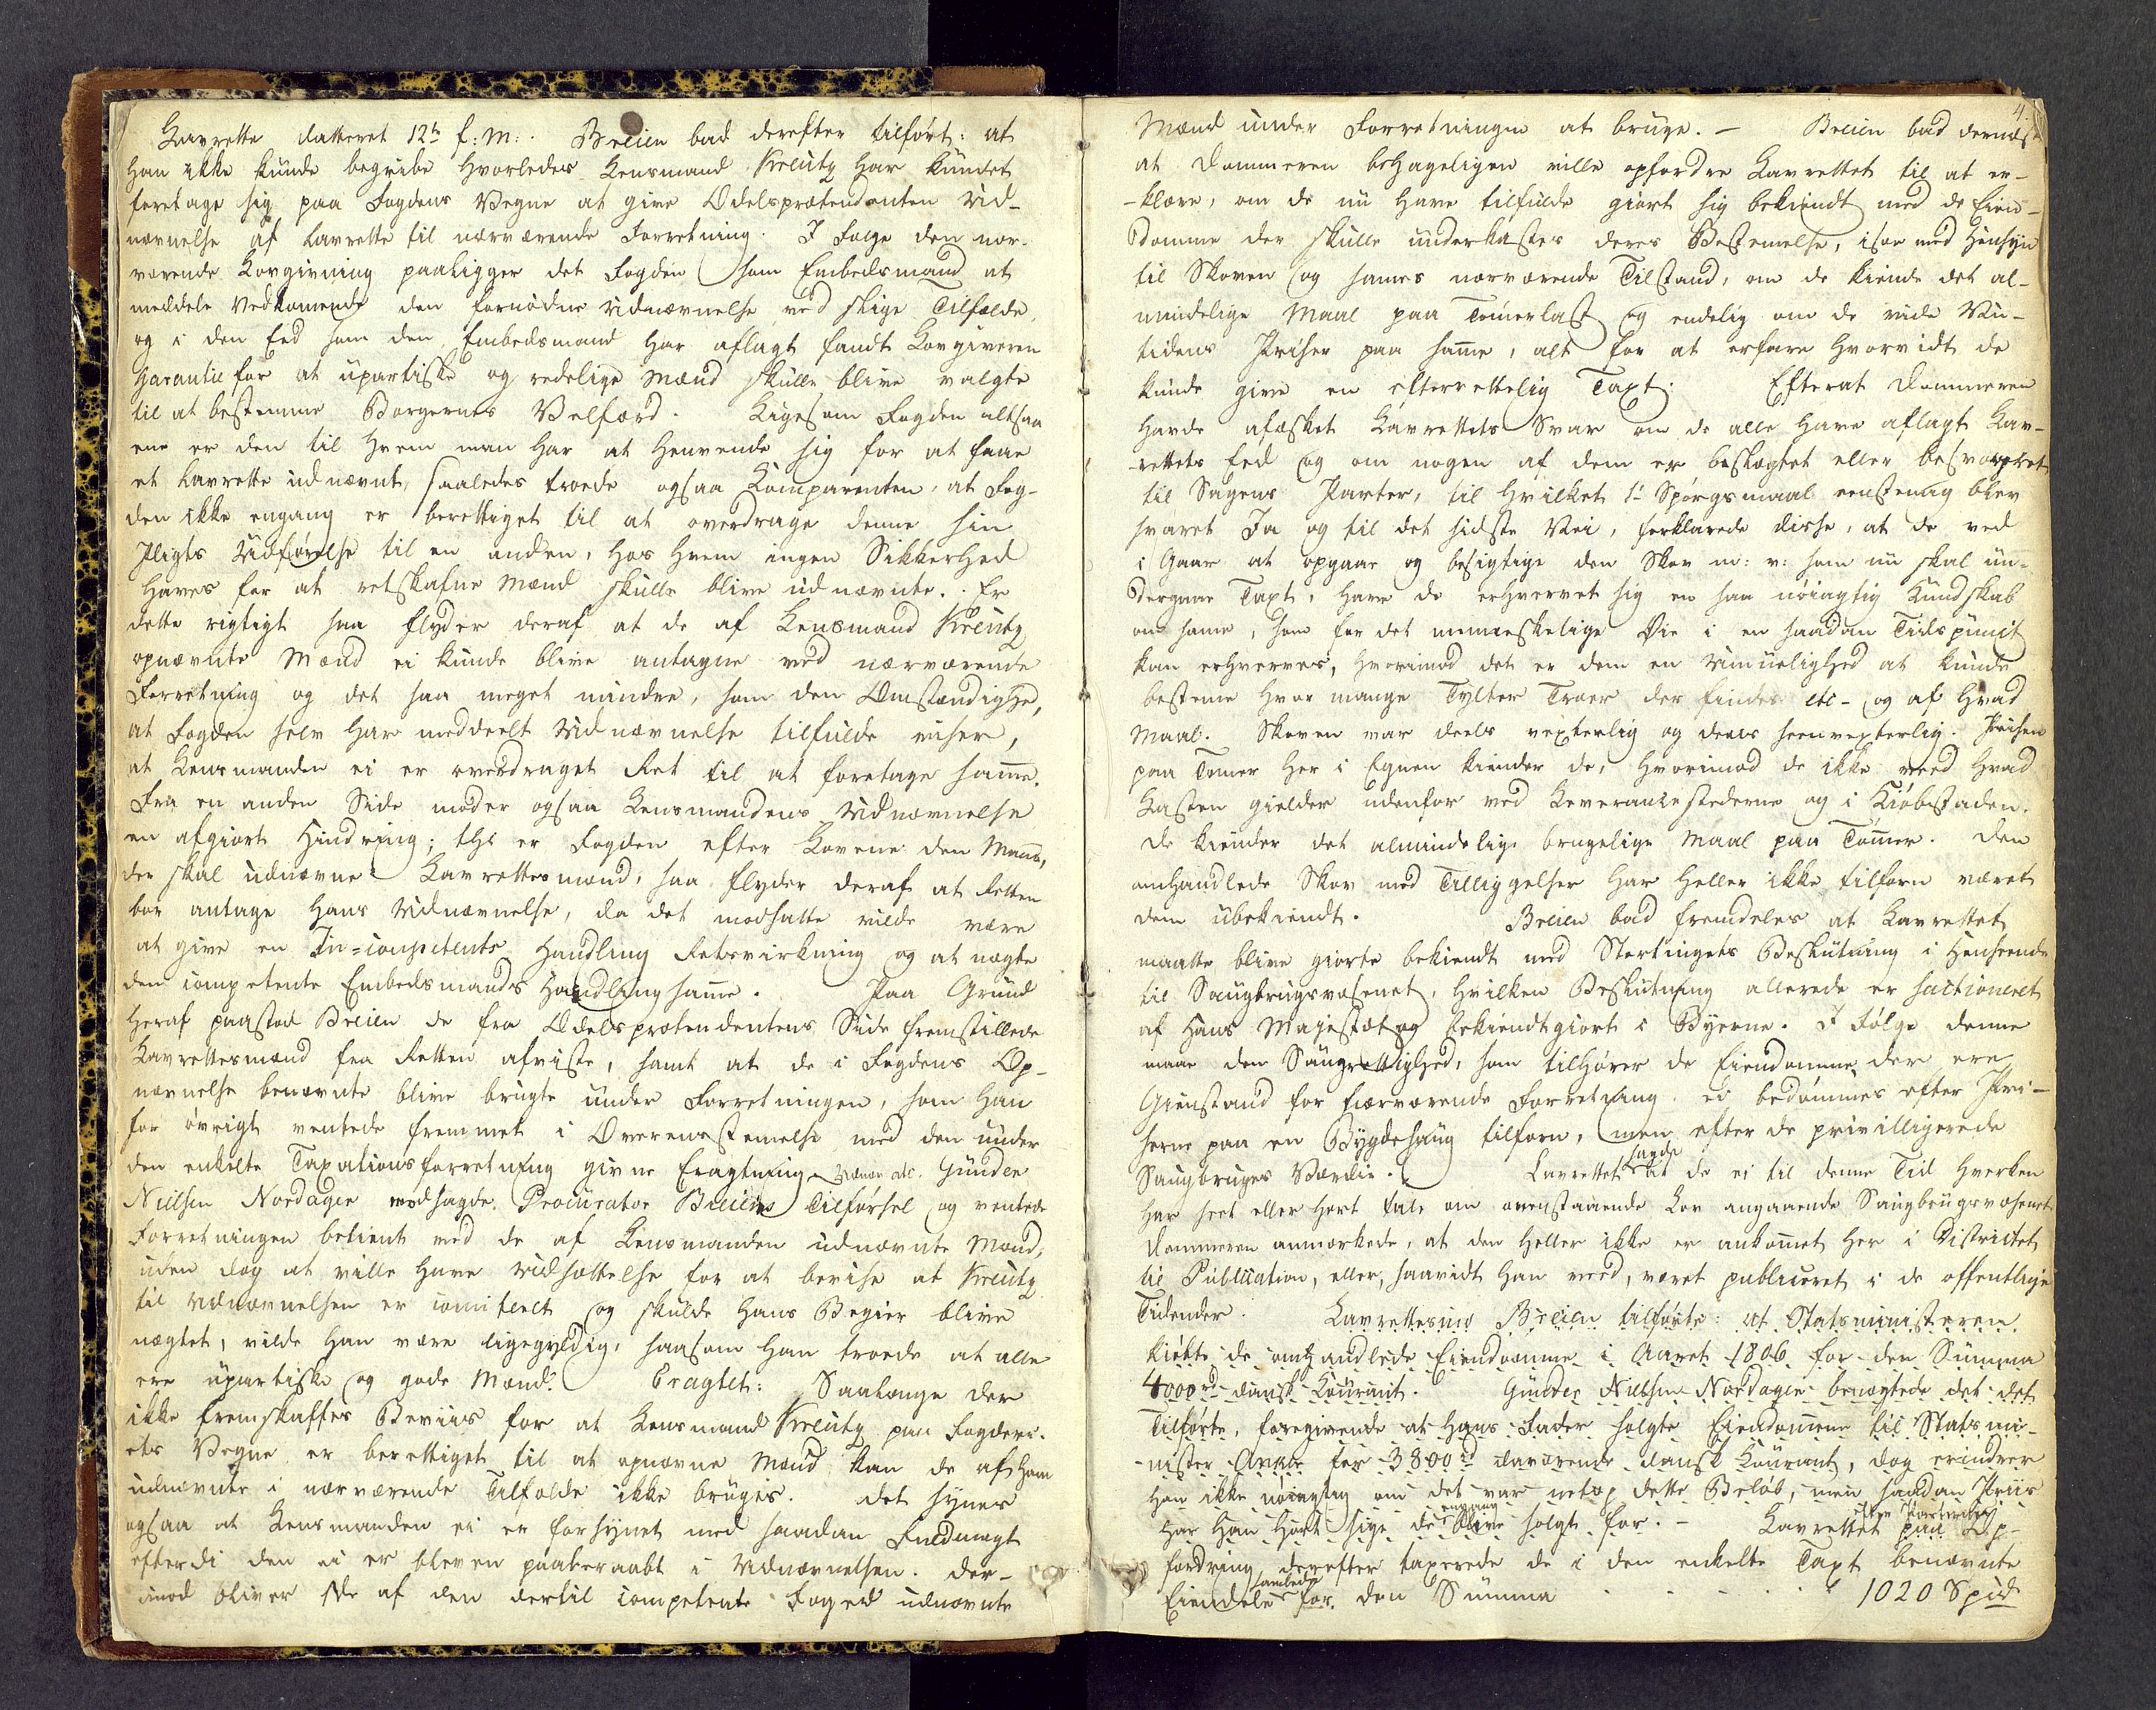 Lavrette datteret 12te f: M:. Breien bad derefter tilført: at
han ikke kunde begribe hvorledes Lensmand Kreutz har kundet
foretage sig paa Fogdens Vegne at give Odelsprætendenten Ud-
nævnelse af Lavrette til nærværende Forretning. I Følge den nær-
værende Lovgivning paaligger det Fogden som Embedsmand at
meddele Vedkomende den fornødne Udnævnelse ved slige Tilfælde,
og i den Eed som den Embedsmand har aflagt fandt Lovgiveren
Garantie for at upartiske og redelige Mænd skulle blive valgte
til at bestemme Borgernes Velfærd. Ligesom Fogden altsaa
ene er den til hvem man har at henvende sig for at faae
et Lavrette udnævnt, saaledes troede ogsaa Komparenten, at Fog-
den ikke engang er berettiget til at overdrage denne sin
Pligts Udførelse til en anden, hos hvem ingen Sikkerhed
haves for at retskafne Mænd skulle blive udnævnte. Er
dette rigtigt saa flyder deraf at de af Lensmand Kreutz
opnævnte Mænd ei kunde blive antagne ved nærværende
Forretning og det saa meget mindre, som den Omstændighed,
at Fogden selv har meddeelt Udnævnelse tilfulde viser,
at Lensmanden ei er overdraget Ret til at foretage same.
Fra en anden Side møder ogsaa Lensmandens Udnævnelse
en afgiort Hindring; thi er Fogden efter Lovene den Mand,
der skal udnævne Lavrettesmænd, saa flyder deraf at Retten
bør antage hans Udnævnelse, da det modsatte vilde være
at give en In-competents Handling Retsvirkning og at nægte
den competente Embedsmands Handling same. Paa Grund
heraf paastod Breien de fra Odelsprætendentens Side fremstillede
Lavrettesmænd fra Retten afviste, samt at de i Fogdens Op-
nævnelse benævnte blive brugte under Forretningen, som han
for øvrigt ventede fremmet i Overensstemelse med den under
den enkelte Taxationsforretning givne Eragtning. Gunder
Nielsen Nordagen modsagde Procurator Breiens Tilførsel og ventede
Forretningen betient med de af Lensmanden udnævnte Mænd,
uden dog at ville have Udsættelse for at bevise at Kreutz
til Udnævnelsen er comitteret og skulde hans Begier blive
nægtet, vilde han være ligegyldig, saasom han troede at alle
ere upartiske og gode Mænd. Eragtet: Saalænge der
ikke fremskaffes Beviis for at Lensmand Kreutz paa Fogderi-
ets Vegne er berettiget til at opnævne Mænd, kan de af ham
udnævnte i nærværende Tilfælde ikke bruges. Det synes
ogsaa at Lensmanden ei er forsynet med saadan Fuldmagt
efterdi den ei er bleven paaberaabt i Udnævnelsen. Der-
imod bliver de af den dertil competente Foged udnævnte
4.
Mænd under Forretningen at bruge. — Breien bad dernæst
at Dommeren behageligen ville opfordre Lavrettet til at er-
-klære, om de nu have tilfulde giort sig bekiendt med de Eien-
domme der skulle underkastes deres Bestemelse, især med Hensyn
til Skoven og sames nærværende Tilstand, om de kiende det al-
mindelige Maal paa Tømerlast og endelig om de vide Nu-
tidens Priser paa same, alt for at erfare hvorvidt de
kunde give en efterrettelig Taxt. Efterat Dommeren
havde afæsket Lavrettets Svar om de alle have aflagt Lav-
-rettets Eed og om nogen af dem er beslægtet eller besvogret
til Sagens Parter, til hvilket 1te Spørgsmaal eenstemig blev
svaret Ja og til det sidste Nei, forklarede disse, at de ved
i Gaar at opgaae og besigtige den Skov m: v: som nu skal un-
dergaae Taxt, have de erhvervet sig en saa nøiagtig Kundskab
om same, som for det menneskelige Øie i en saadan Tidspunct
kan erhverves, hvorimod det er dem en Umuelighed at kunde
besteme hvor mange Tylter Træer der findes etc - og af hvad
Maal. Skoven var deels vexterlig og deels seenvexterlig. Prisen
paa Tømer her i Egnen kiender de, hvorimod de ikke veed hvad
Lasten gielder udenfor ved Leverancestederne og i Kiøbstaden.
De kiender det almindelige brugelige Maal paa Tømer. Den
omhandlede Skov med Tilliggelser har heller ikke tilforn været
dem ubekiendt. Breien bad fremdeles at Lavrettet
maatte blive giorte bekiendt med Stortingets Beslutning i Henseende
til Saugbrugsvæsenet, hvilken Beslutning allerede er sactioneret
af Hans Majestæt og bekiendtgiort i Byerne. I Følge denne
maae den Saugrettighed, som tilhører de Eiendomme der ere
Gienstand for nærværende Forretning ei bedømmes efter Pri-
serne paa en Bygdesaug tilforn, men efter de privilligerede
Saugbruges Værdie. Lavrettet sagde at de ei til denne Tid hverken
har seet eller hørt tale om ovenstaaende Lov angaaende Saugbrugsvæsenet
Dommeren anmærkede, at den heller ikke er ankomet her i Districtet
til Publication, eller, saavidt han veed, været publiceret i de offentlige
Tidender. Breien tilførte: at Statsministeren
kiøbte de omhandlede Eiendomme i Aaret 1806 for den Summa
4000 rd dansk Courant. Gunder Nielsen Nordagen benægtede det det
Tilførte, foregivende at hans Fader solgte Eiendomene til Statsmi-
-nister Anker for 3800 rd daværende dansk Courant, dog erindrer
han ikke nøiagtig om det var netop dette Beløb, men saadan Priis
har han hørt sige de engang blive solgt for. — Lavrettet paa Op-
fordring derefter taxerede de i den enkelte Taxt benævnte
Eiendele samlede for den Summa 1020 Spd